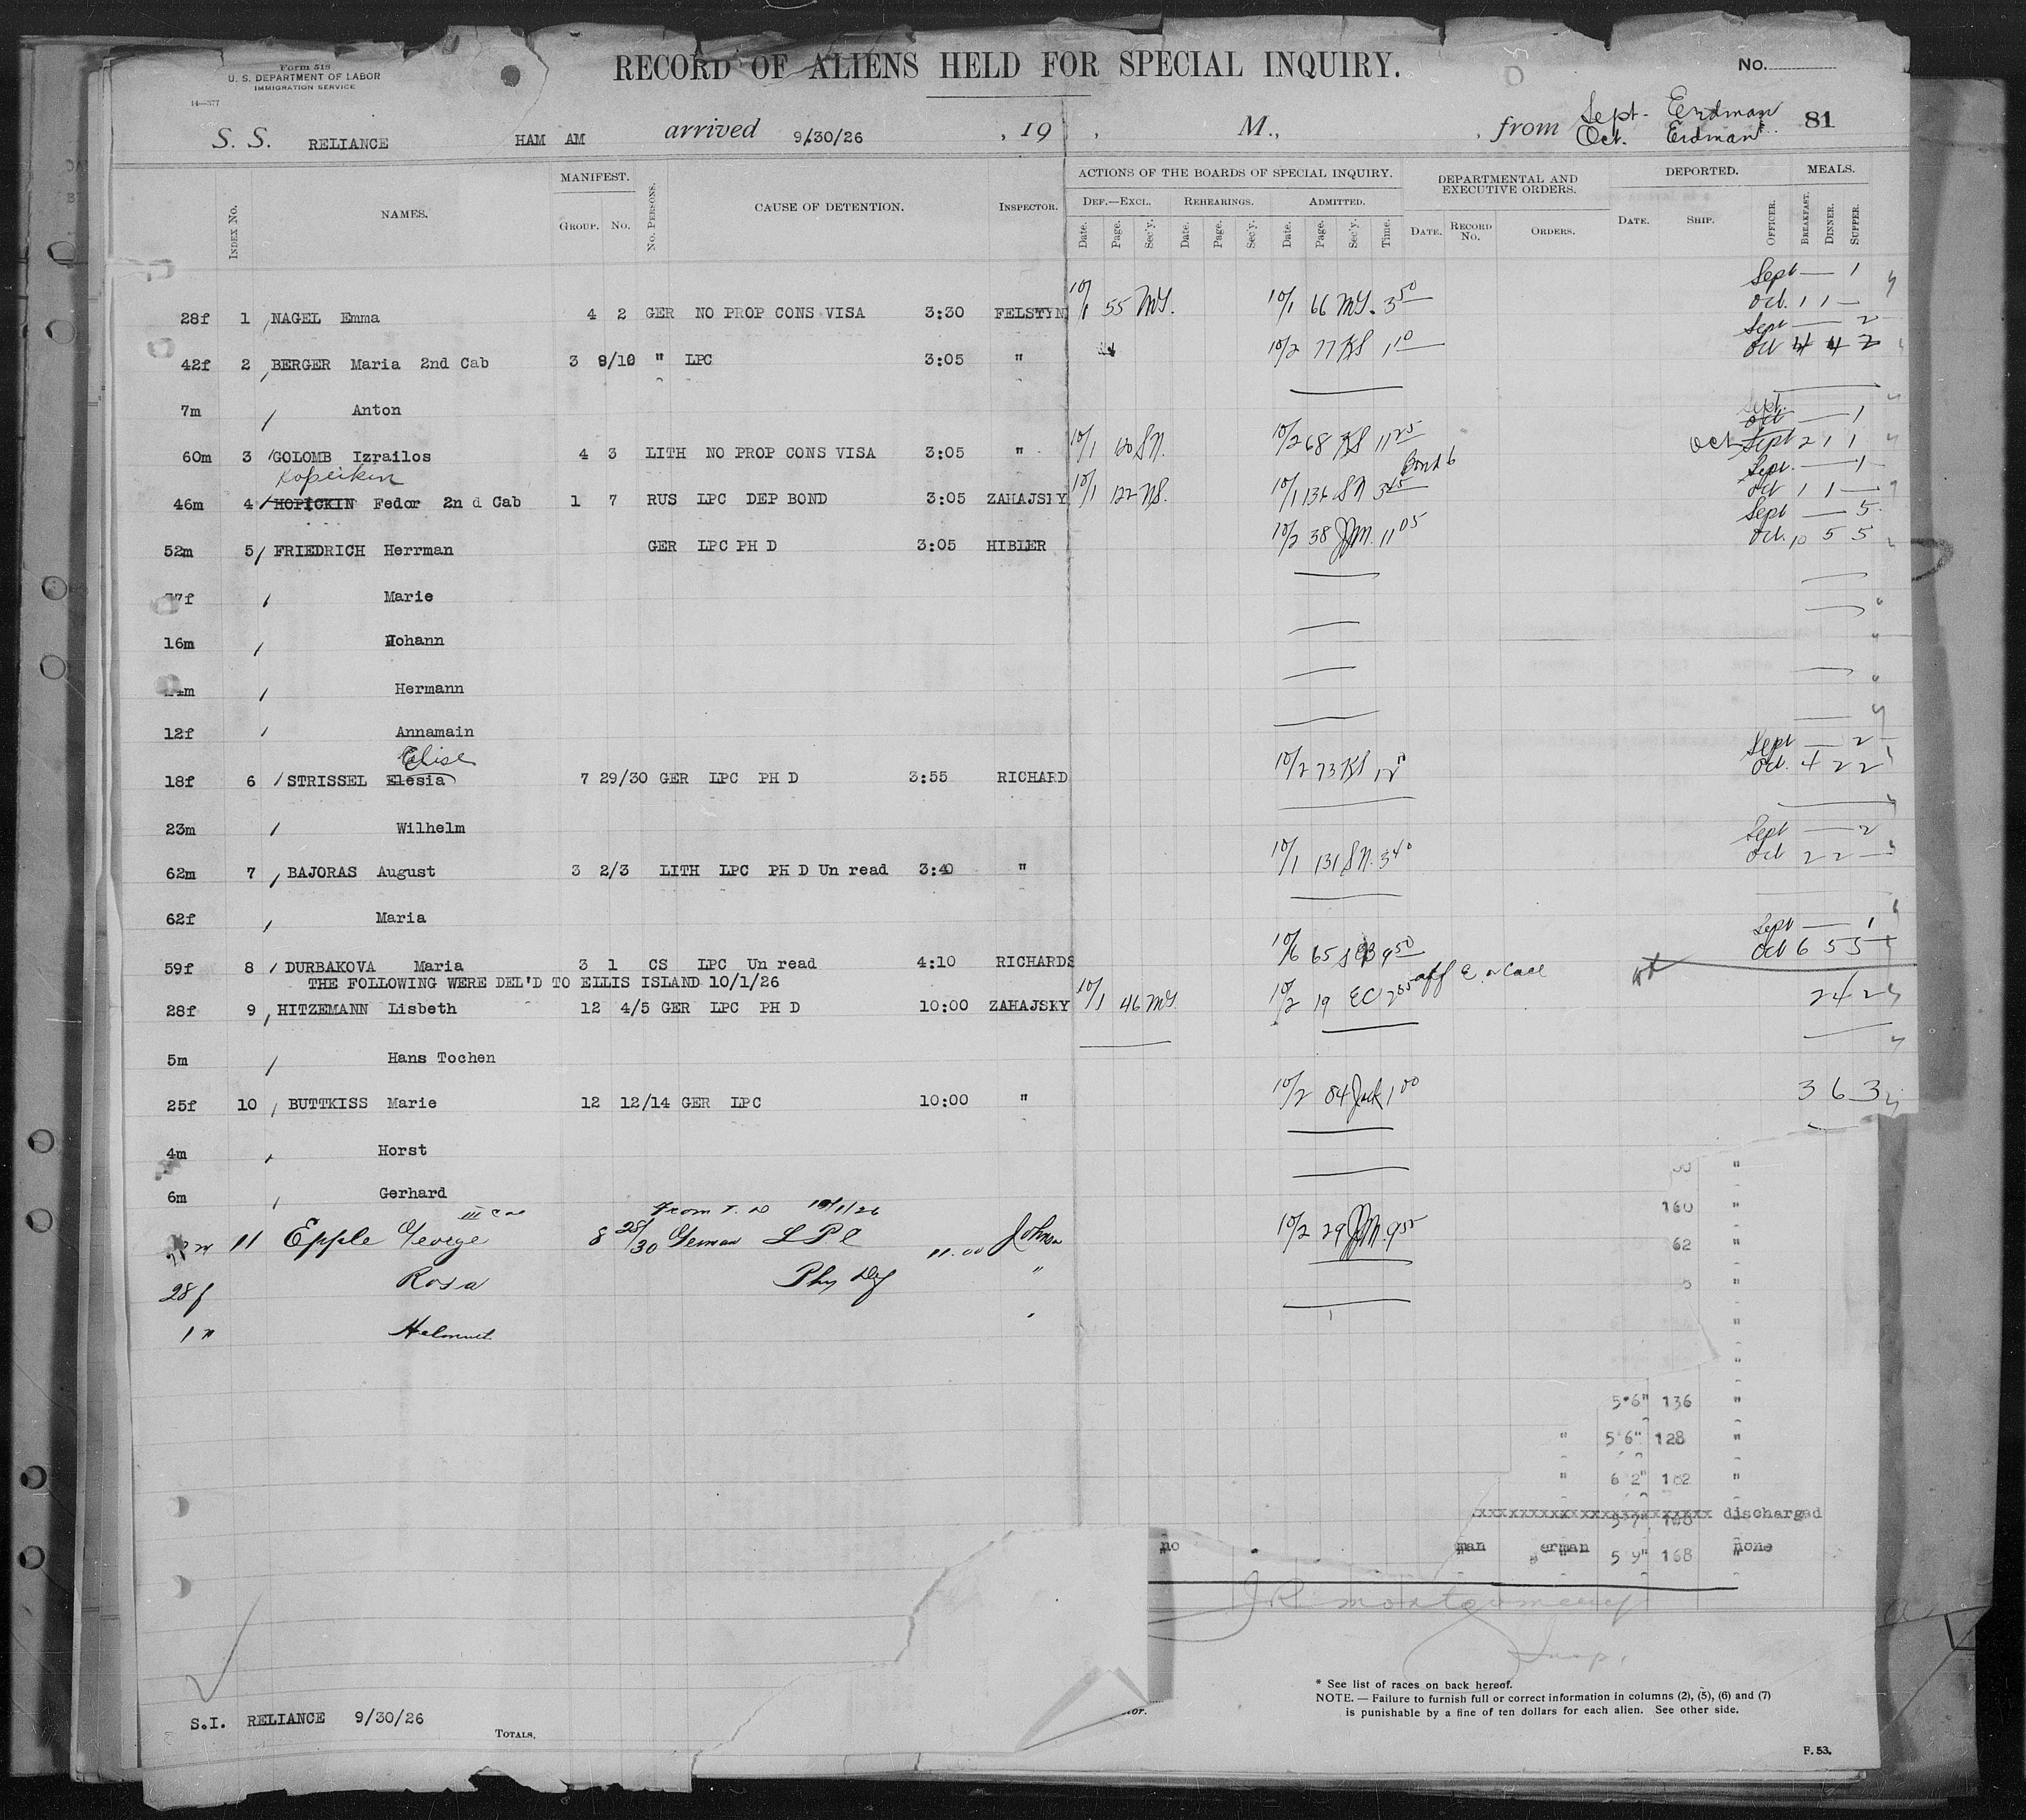 Form 518
U. S. DEPARTMENT OF LABOR
IMMIGRATION SERVICE
14—377
RECORD OF ALIENS HELD FOR SPECIAL INQUIRY.
No.
S. S. RELIANCE HAM AM arrived 9/30/26 , 19 , M., , from Sept- Erdman 81
Oct. Erdman
INDEX No. NAMES. MANIFEST. GROUP. No. No. PERSONS. CAUSE OF DETENTION. INSPECTOR. ACTIONS OF THE BOARDS OF SPECIAL INQUIRY. DEPARTMENTAL AND EXECUTIVE ORDERS. DEPORTED. MEALS.
DEF.—EXCL. REHEARINGS. ADMITTED.
Date. Page. Sec'y. Date. Page. Sec'y. Date. Page. Sec'y. Time. DATE. RECORD No. ORDERS. DATE. SHIP. OFFICER. BREAKFAST. DINNER. SUPPER.
Sept — 1
28f 1 NAGEL Emma 4 2 GER NO PROP CONS VISA 3:30 FELSTYN 10/1 55 10/1 66 3 50 Oct. 1 1 —
Sept — 2
42f 2 BERGER Maria 2nd Cab 3 9/10 " LPC 3:05 " 10/2 77 KS 1 10 Oct 4 4 2
7m Anton
Sept. Oct — 1
60m 3 GOLOMB Izrailos 4 3 LITH NO PROP CONS VISA 3:05 " 10/1 60 SN. 10/2 68 KS 11 25 Oct Sept 2 1 1
Kopeikin
Bond 6
Sept. — 1
46m 4 HOPICKIN Fedor 2nd Cab 1 7 RUS LPC DEP BOND 3:05 ZAHAJSKY 10/1 122 NS. 10/1 136 SN 3 45 Oct 1 1 —
Sept — 5
52m 5 FRIEDRICH Herrman GER LPC PH D 3:05 HIBLER 10/2 38 JM. 11 05 Oct. 10 5 5
7f Marie
16m Johann
4m Hermann
12f Annamain
Elise
Sept — 2
18f 6 STRISSEL Elesia 7 29/30 GER LPC PH D 3:55 RICHARD 10/2 73 KS Oct. 4 2 2
23m Wilhelm
Sept — 2
62m 7 BAJORAS August 3 2/3 LITH LPC PH D Un read 3:40 " 10/1 131 SN. 3 40 Oct 2 2 —
62f Maria
Sept — 1
59f 8 DURBAKOVA Maria 3 1 CS LPC Un read 4:10 RICHARDS 10/6 65 9 50 Oct 6 5 5
THE FOLLOWING WERE DEL'D TO ELLIS ISLAND 10/1/26
28f 9 HITZEMANN Lisbeth 12 4/5 GER LPC PH D 10:00 ZAHAJSKY 10/1 46 10/2 19 EC 2 55 2 4 2
5m Hans Tochen
25f 10 BUTTKISS Marie 12 12/14 GER LPC 10:00 " 10/2 84 1 00 3 6 3
4m Horst
6m Gerhard
III Cab From T. D 10/1/26
11 Epple George 8 28/30 German L P C 11.00 Johnson 10/2 29 JM. 9 55
28f Rosa Phy Def "
1 m Helmuth
160 "
62 "
5'6" 136 "
" 5'6" 128 "
" 6 2" 182 "
xxxxxxxxxxxxxxxxxxxxxxxxx discharged
5'7" 168
no man erman 5 9" 168 none
J R Montgomery
Insp.
* See list of races on back hereof.
NOTE. — Failure to furnish full or correct information in columns (2), (5), (6) and (7)
is punishable by a fine of ten dollars for each alien. See other side.
S.I. RELIANCE 9/30/26
TOTALS,
F. 53.